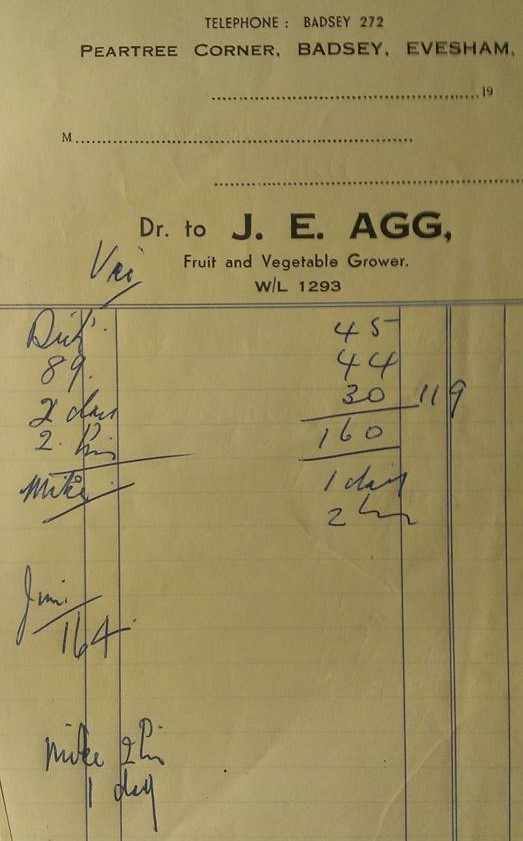 TELEPHONE : BADSEY 272
PEARTREE CORNER, BADSEY, EVESHAM,
19
M
Dr. to J. E. AGG,
Fruit and Vegetable Grower.
W/L 1293
45
89. 44
2 days 30 119
2. 160
Mike 1 day
2 hrs
Jim
164
Mike 2
1 day